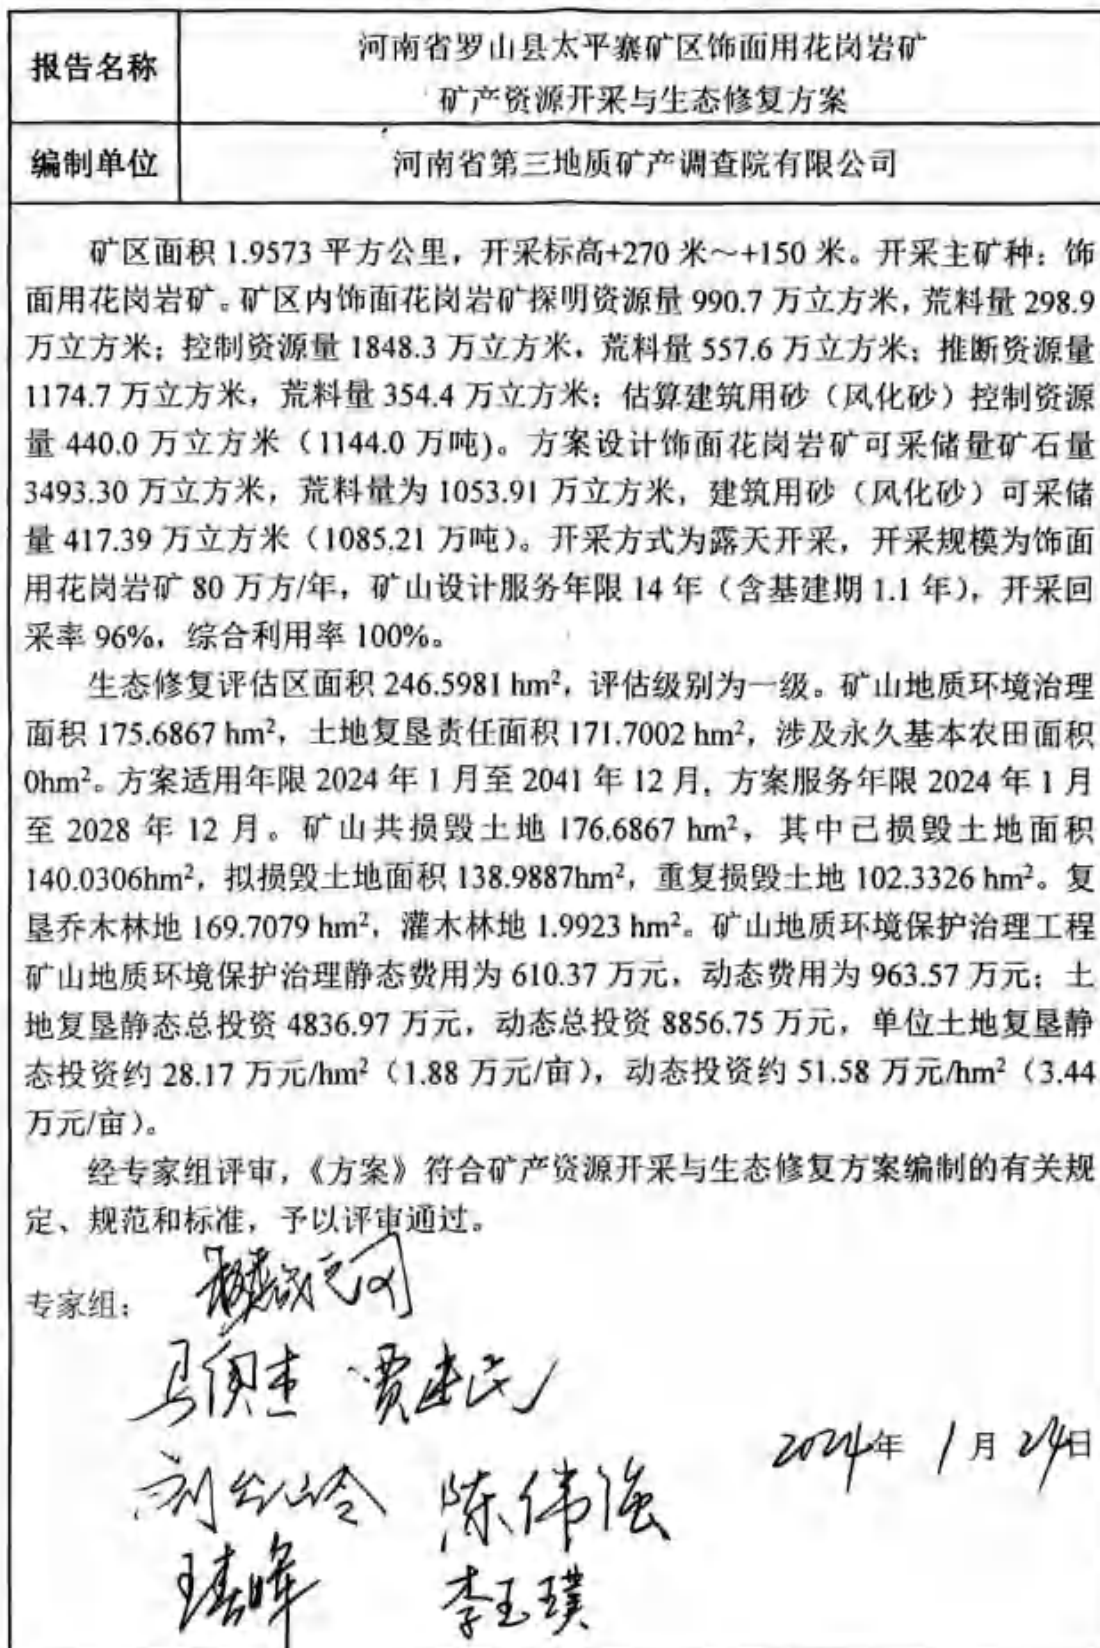 报告名称
河南省罗山县太平寨矿区饰面用花岗岩矿
矿产资源开采与生态修复方案
编制单位
河南省第三地质矿产调查院有限公司
矿区面积 1.9573 平方公里，开采标高+270 米～+150 米。开采主矿种：饰
面用花岗岩矿。矿区内饰面花岗岩矿探明资源量 990.7 万立方米，荒料量 298.9
万立方米；控制资源量 1848.3 万立方米，荒料量 557.6 万立方米；推断资源量
1174.7 万立方米，荒料量 354.4 万立方米；估算建筑用砂（风化砂）控制资源
量 440.0 万立方米（1144.0 万吨)。方案设计饰面花岗岩矿可采储量矿石量
3493.30 万立方米，荒料量为 1053.91 万立方米，建筑用砂（风化砂）可采储
量 417.39 万立方米（1085.21 万吨）。开采方式为露天开采，开采规模为饰面
用花岗岩矿 80 万方/年，矿山设计服务年限 14 年（含基建期 1.1 年），开采回
采率 96%，综合利用率 100%。
生态修复评估区面积 246.5981 hm²，评估级别为一级。矿山地质环境治理
面积 175.6867 hm²，土地复垦责任面积 171.7002 hm²，涉及永久基本农田面积
0hm²。方案适用年限 2024 年 1 月至 2041 年 12 月, 方案服务年限 2024 年 1 月
至 2028 年 12 月。矿山共损毁土地 176.6867 hm²，其中已损毁土地面积
140.0306hm²，拟损毁土地面积 138.9887hm²，重复损毁土地 102.3326 hm²。复
垦乔木林地 169.7079 hm²，灌木林地 1.9923 hm²。矿山地质环境保护治理工程
矿山地质环境保护治理静态费用为 610.37 万元，动态费用为 963.57 万元；土
地复垦静态总投资 4836.97 万元，动态总投资 8856.75 万元，单位土地复垦静
态投资约 28.17 万元/hm²（1.88 万元/亩），动态投资约 51.58 万元/hm²（3.44
万元/亩）。
经专家组评审，《方案》符合矿产资源开采与生态修复方案编制的有关规
定、规范和标准，予以评审通过。
专家组：
贾建民
2024年 1月 24日
陈伟强
李玉璞